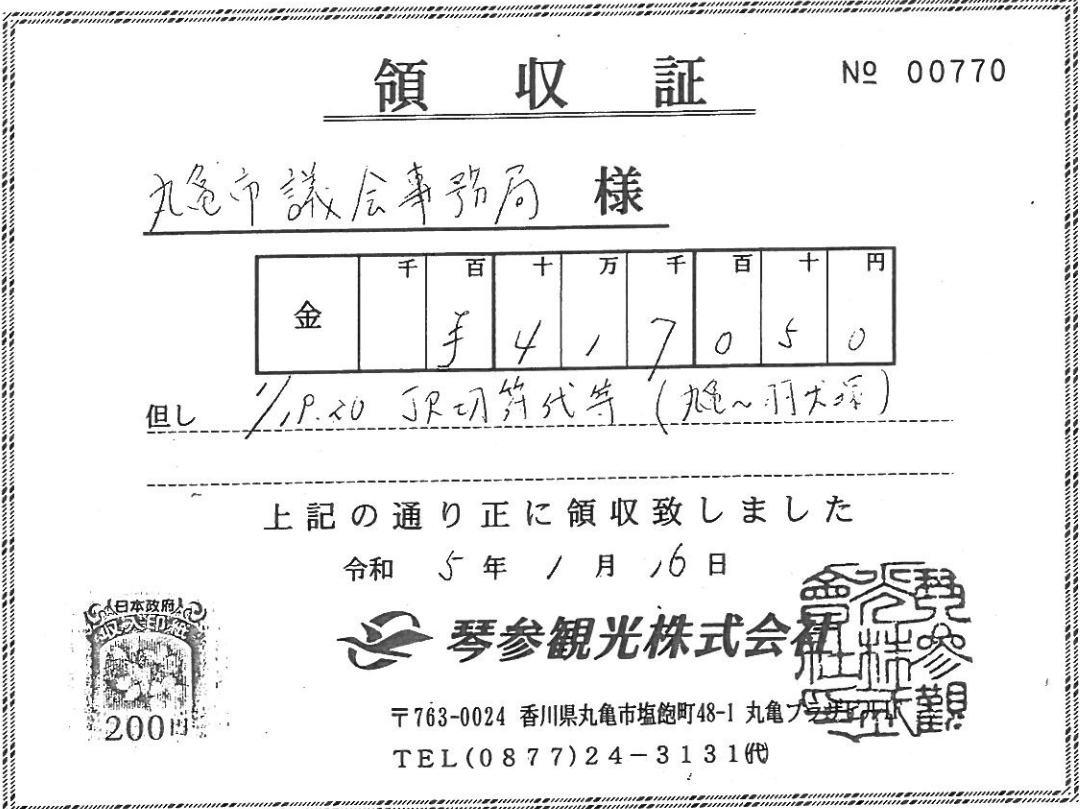 領収証
№ 00770
丸亀市議会事務局 様
金 千 百 十 万 千 百 十 円
¥ 4 1 7 0 5 0
但し 1/19.20 JR切符代等（丸亀〜羽犬塚）
上記の通り正に領収致しました
令和 5年 1月 16日
日本政府
収入印紙
200円
琴参観光株式会社
〒763-0024 香川県丸亀市塩飽町48-1 丸亀プラザビル
TEL(0877)24-3131㈹
琴参観光株式会社